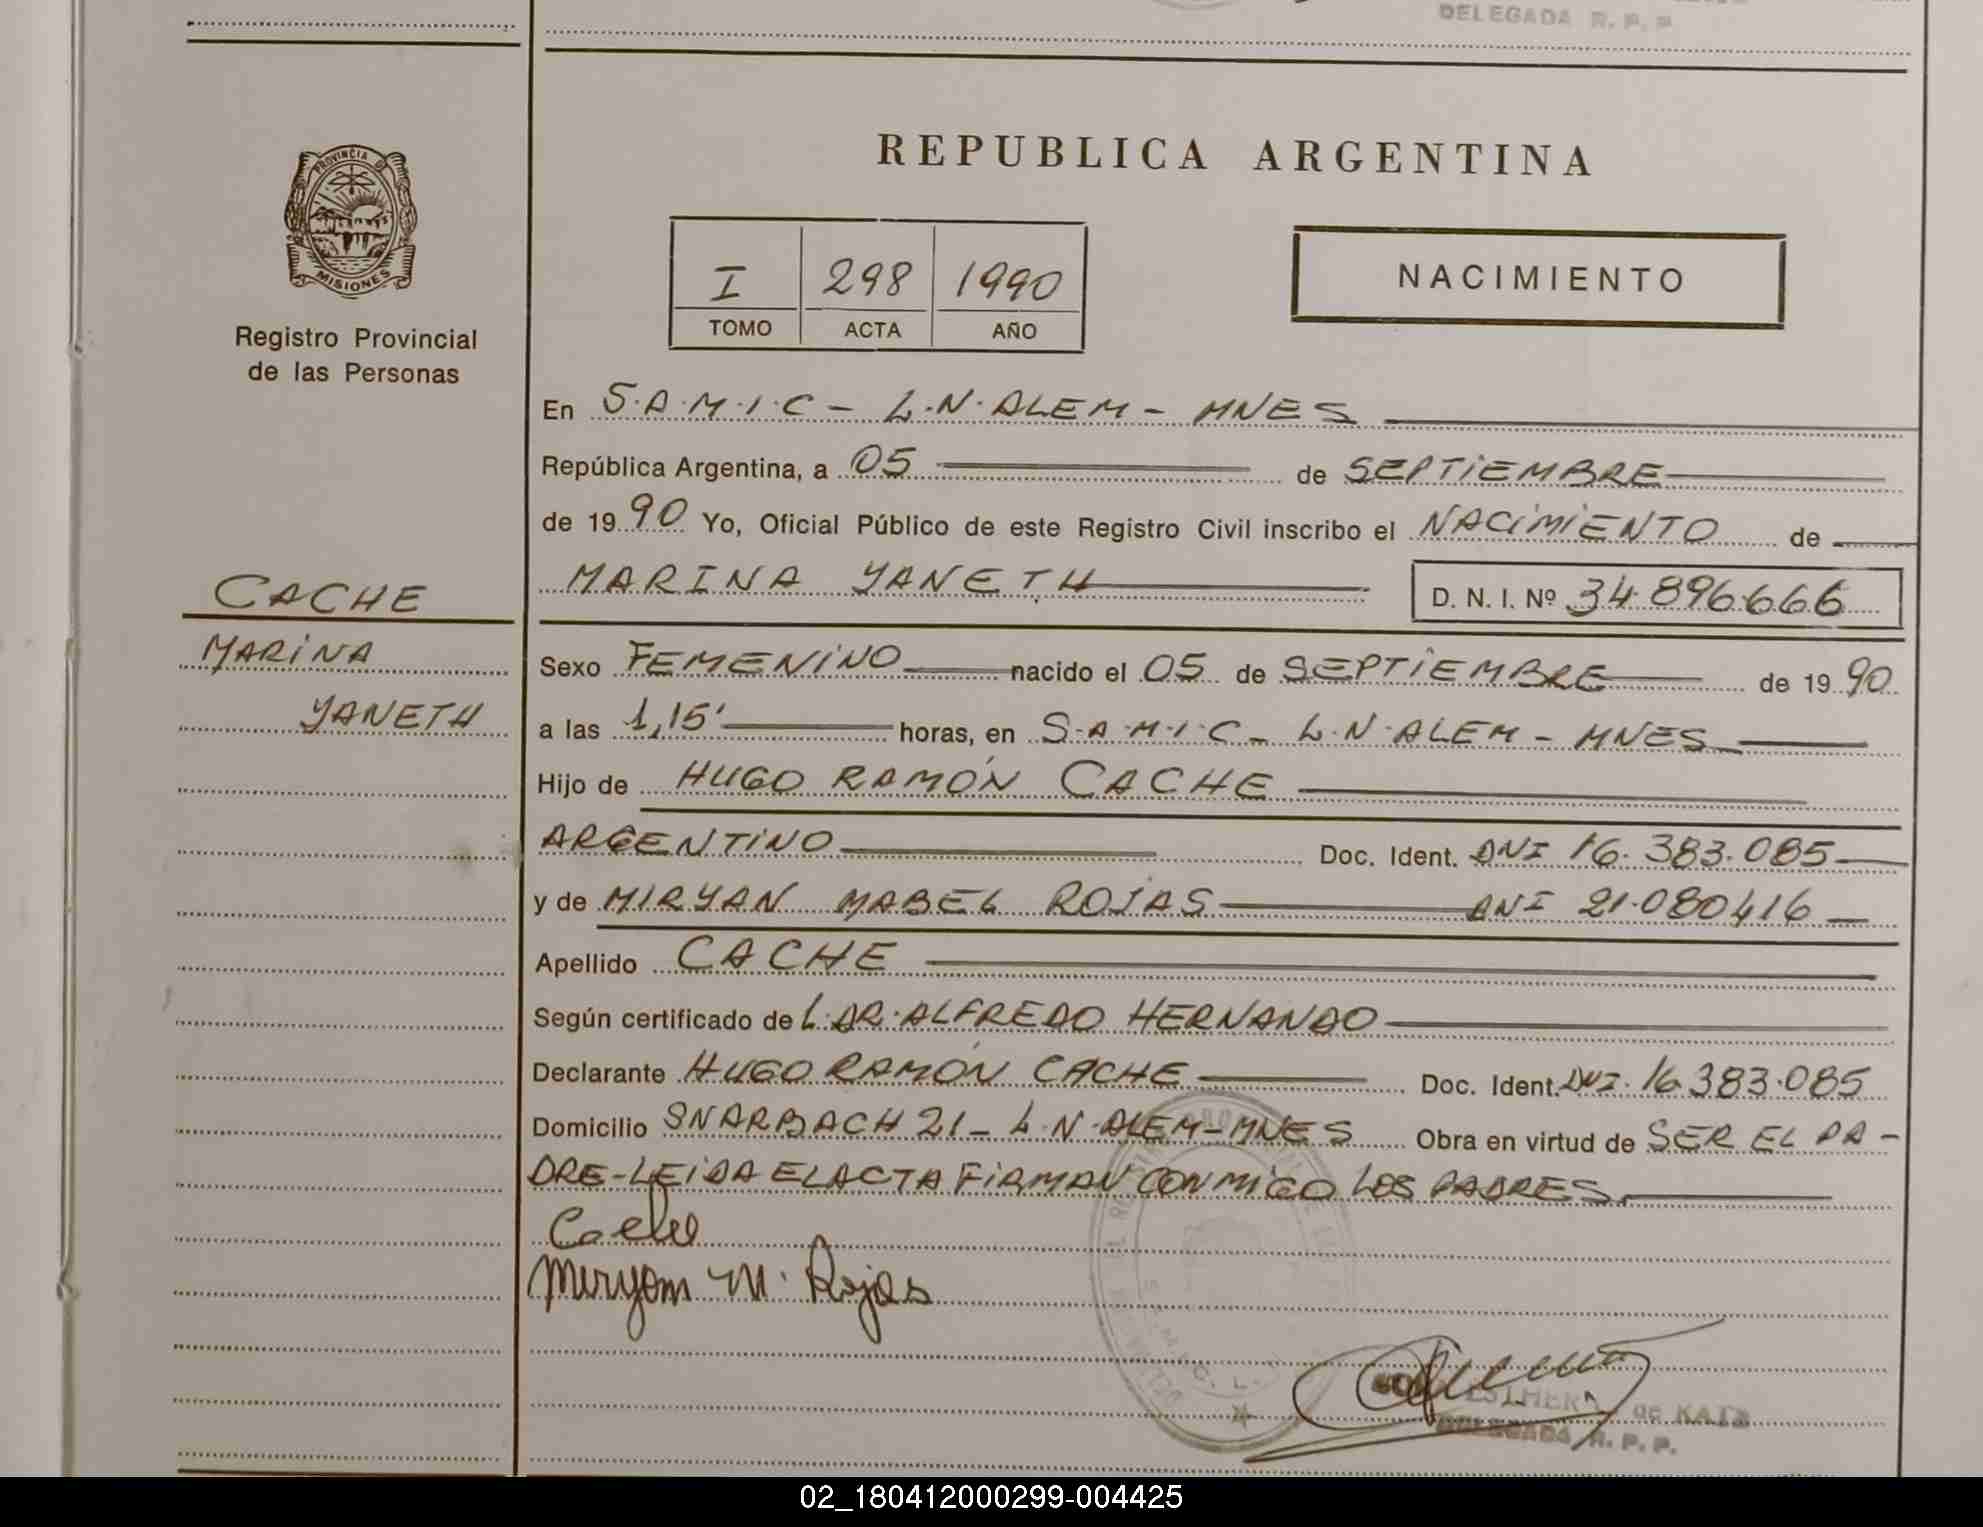 DELEGADA R. P. P.
REPUBLICA ARGENTINA
PROVINCIA DE
MISIONES
Registro Provincial
de las Personas
I 298 1990
TOMO ACTA AÑO
NACIMIENTO
En S.A.M.I.C - L.N.ALEM - MNES
República Argentina, a 05 de SEPTIEMBRE
de 1990 Yo, Oficial Público de este Registro Civil inscribo el NACIMIENTO de
MARINA YANETH D. N. I. Nº 34.896.666
CACHE
MARINA
YANETH
Sexo FEMENINO nacido el 05 de SEPTIEMBRE de 1990
a las 1,15' horas, en S.A.M.I.C - L.N.ALEM - MNES
Hijo de HUGO RAMÓN CACHE
ARGENTINO Doc. Ident. DNI 16.383.085
y de MIRYAN MABEL ROJAS DNI 21.080416
Apellido CACHE
Según certificado de L.DR.ALFREDO HERNANDO
Declarante HUGO RAMÓN CACHE Doc. Ident. DNI. 16.383.085
Domicilio SNARBACH 21 - L.N.ALEM - MNES Obra en virtud de SER EL PA-
DRE-LEIDA EL ACTA FIRMAN CONMIGO LOS PADRES
Cache
Miryam M. Rojas
ESTHER de KATZ
DELEGADA R. P. P.
02_180412000299-004425